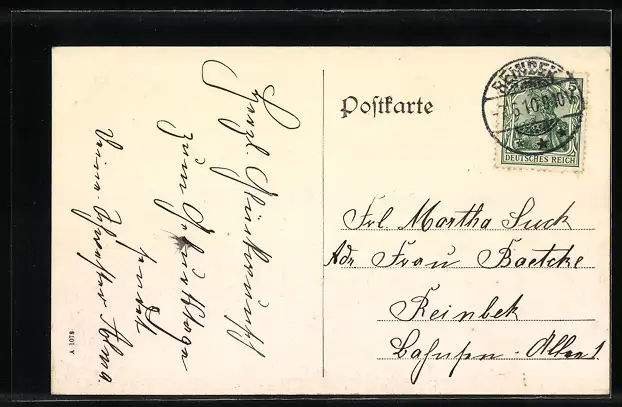 Herzl. Glückwunsch
zum Geburtstage
sendet
Deine Schwester Alma.
Postkarte
REINBEK
5.10.09 10-11V
5
DEUTSCHES REICH
Frl. Martha Suck
Adr. Frau Baetcke
Reinbek
Bahnsen-Allee 1
A 1078